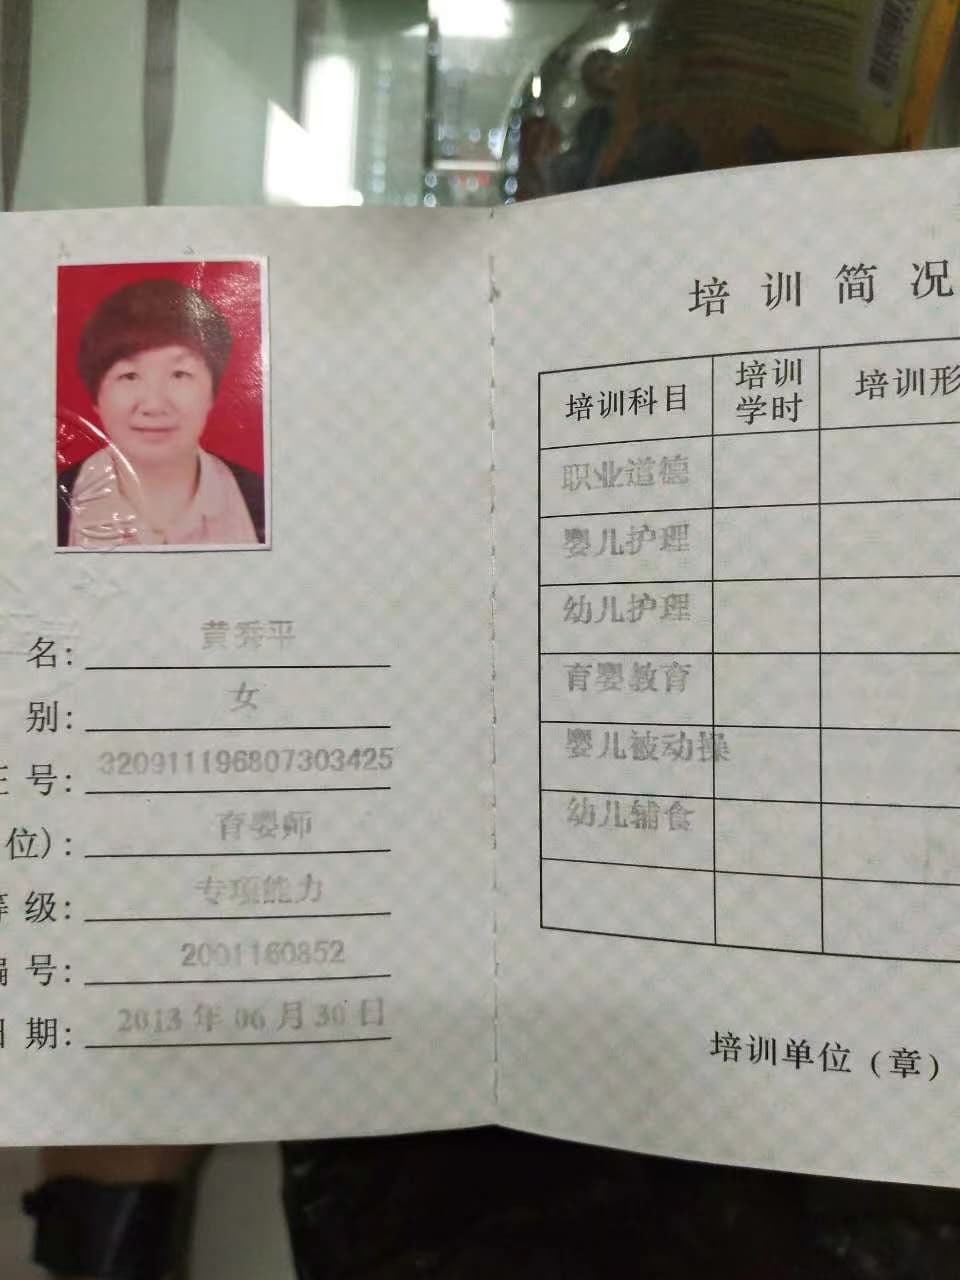 名：黄秀平
别：女
号：320911196807303425
位)：育婴师
级：专项能力
号：2001160852
期：2013年06月30日
培训简况
培训科目 培训学时 培训形
职业道德
婴儿护理
幼儿护理
育婴教育
婴儿被动操
幼儿辅食
培训单位（章）